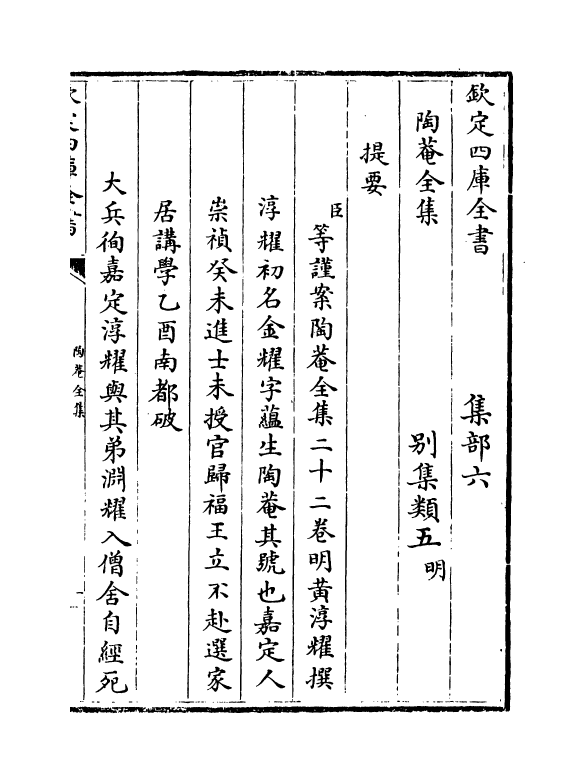 欽定四庫全書　集部六
陶菴全集　別集類五明
提要
臣等謹案陶菴全集二十二卷明黃淳耀撰
淳耀初名金耀字蘊生陶菴其號也嘉定人
崇禎癸未進士未授官歸福王立不赴選家
居講學乙酉南都破
大兵徇嘉定淳耀與其弟淵耀入僧舍自經死
陶菴全集